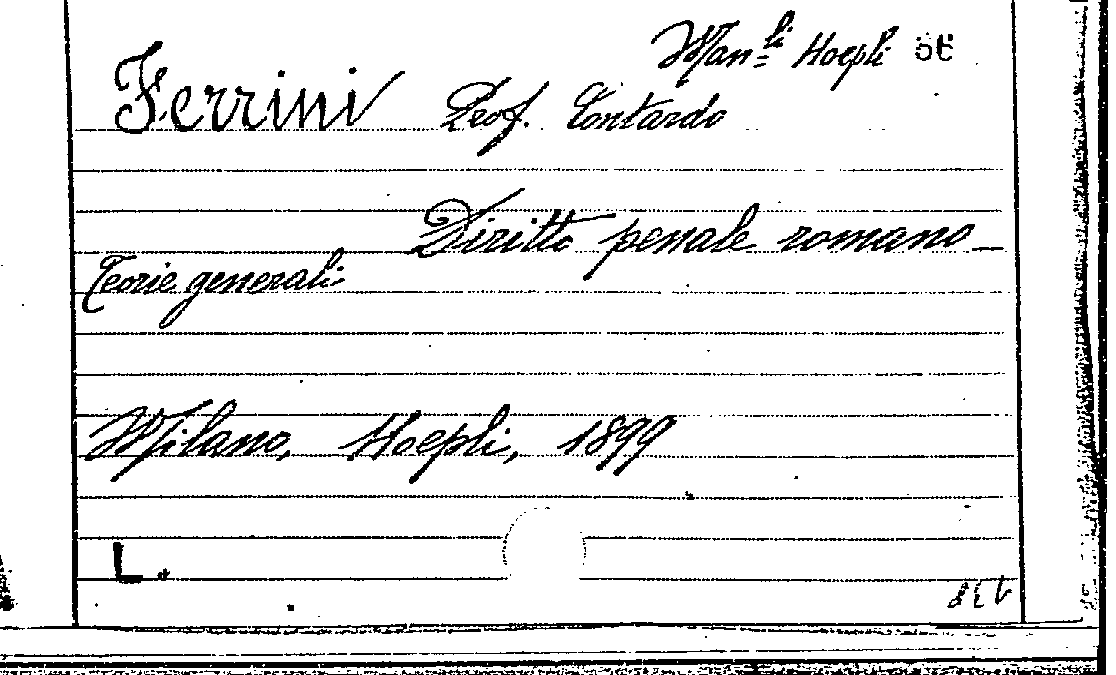 Man.li Hoepli 56
Ferrini Prof. Contardo
Diritto penale romano_
Teorie generali:
Milano, Hoepli, 1899
L.